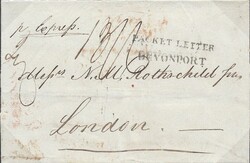 p. Express.
PACKET LETTER
DEVONPORT
Messrs N. M. Rothschild
London.